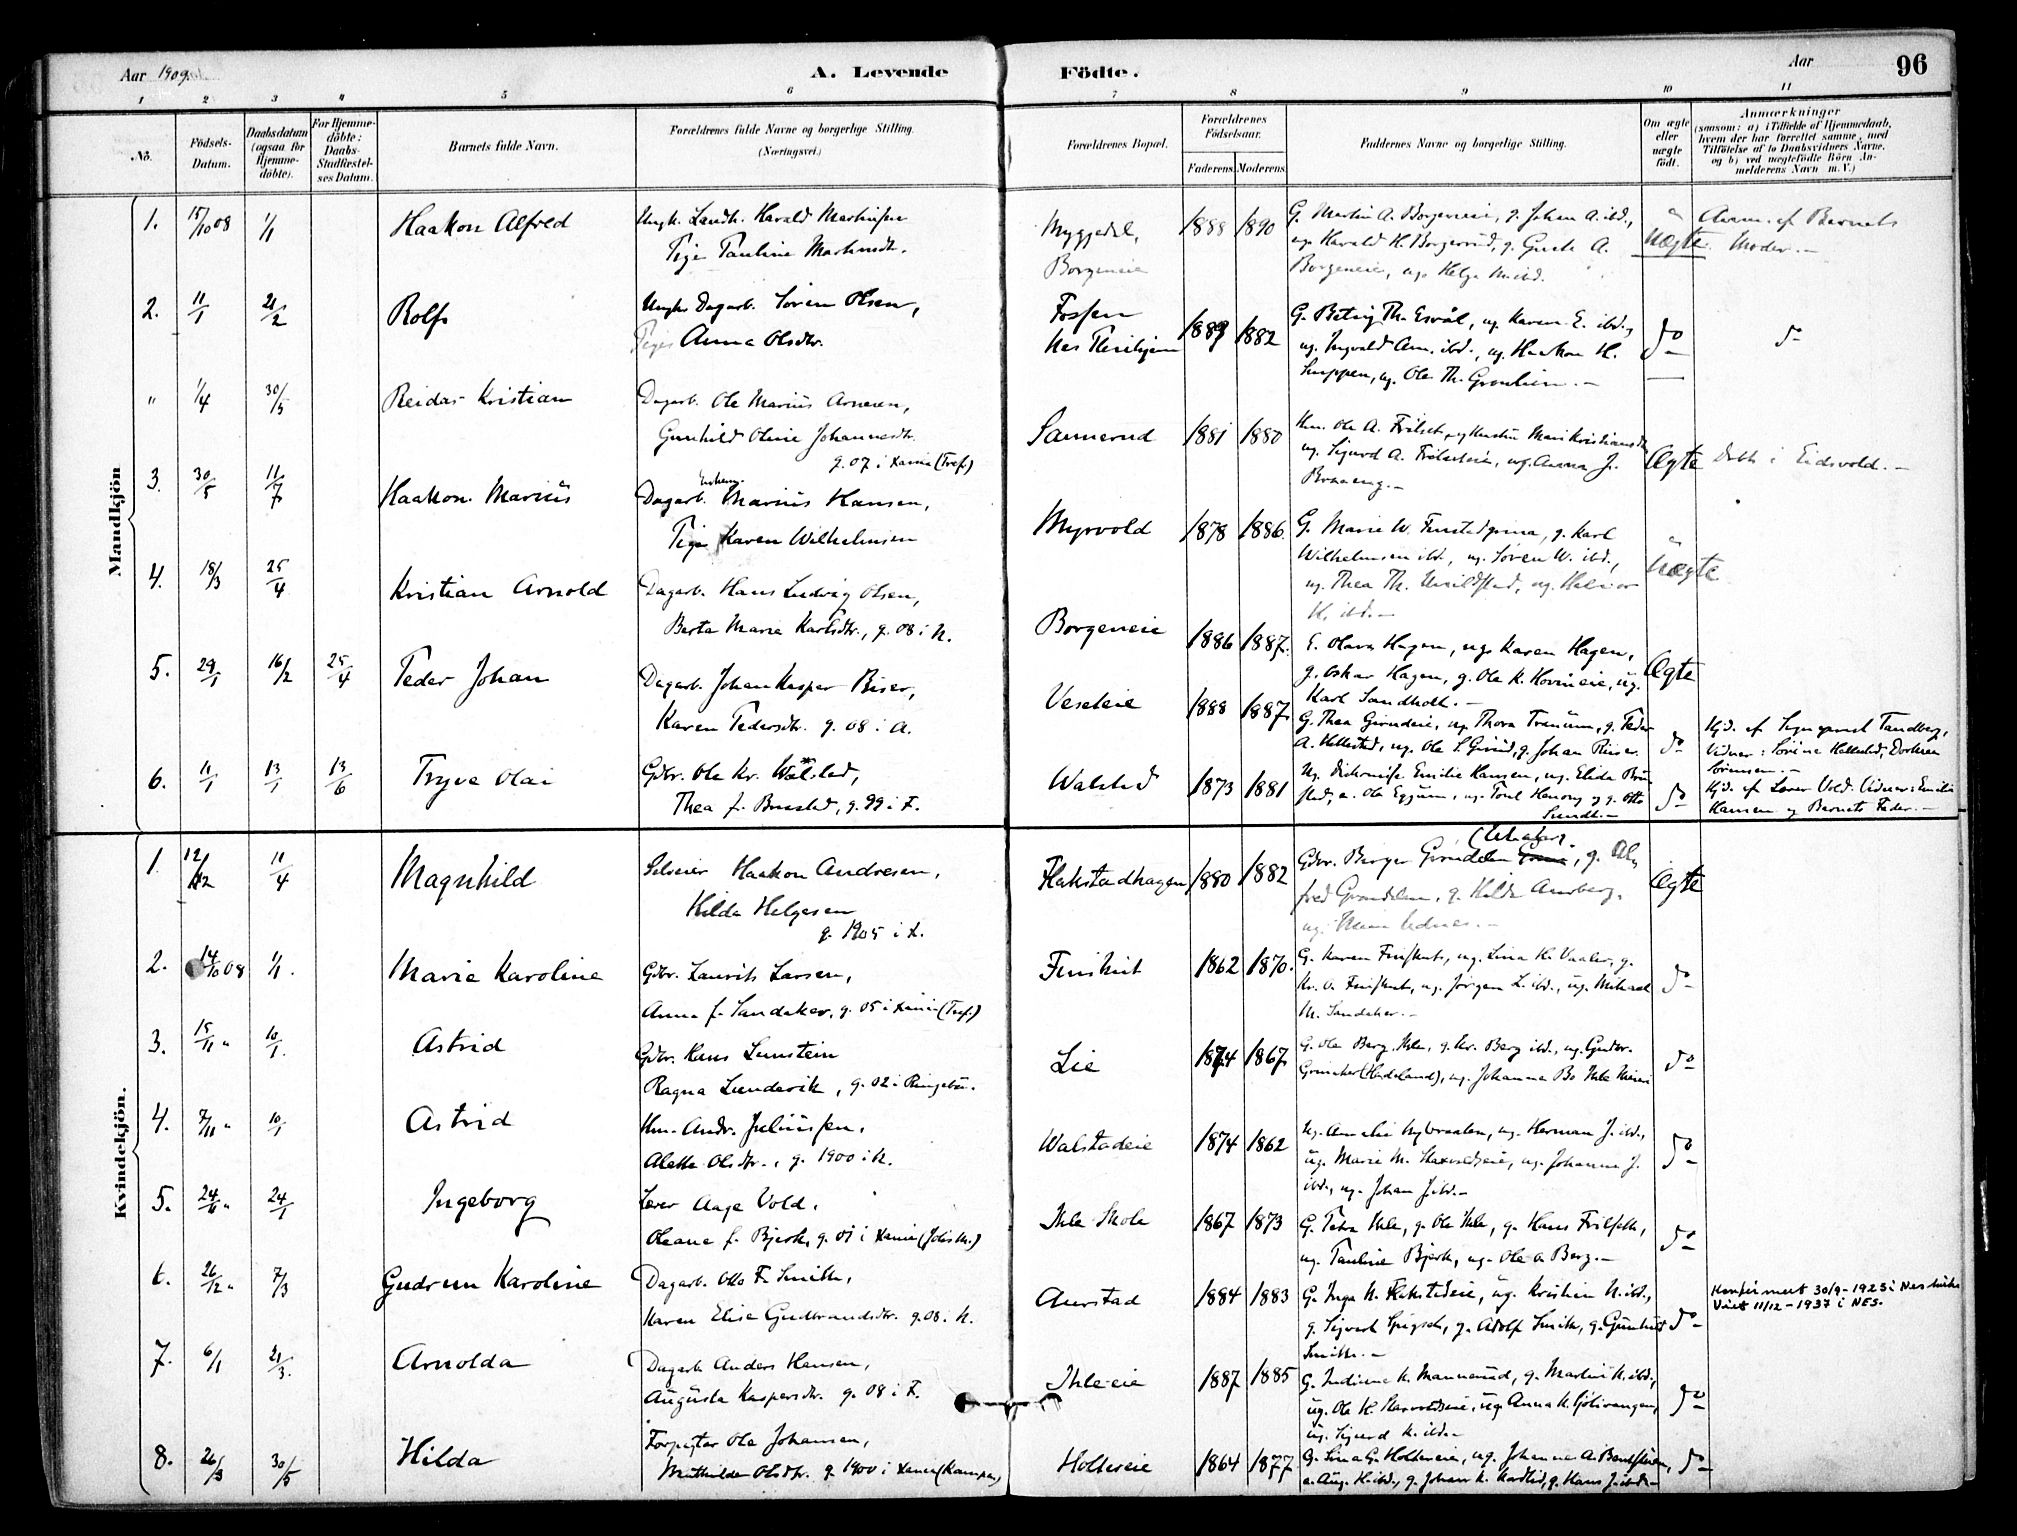 Aar 1909.
A. Levende Födte.
Aar
96
1 2 3 4 5 6 7 8 9 10 11
No.
Födsels-Datum.
Daabsdatum (ogsaa for Hjemme-döbte).
For Hjemme-döbte: Daabs-Stadfæstel-ses Datum.
Barnets fulde Navn.
Forældrenes fulde Navne og borgerlige Stilling.
(Næringsvei.)
Forældrenes Bopæl.
Forældrenes Födselsaar.
Faderens. Moderens.
Faddernes Navne og borgerlige Stilling.
Om ægte eller uægte födt.
Anmærkninger
(saasom: a) i Tilfælde af Hjemmedaab,
hvem der har forrettet samme, med
Tilföielse af to Daabsvidners Navne,
og b) ved uægtefödte Börn An-
melderens Navn m. V.)
Mandkjön
1. 15/10 08 1/1 Haakon Alfred
Ungk. Landh. Harald Martinsen
Pige Pauline Martinsdtr.
Myggedal,
Borgeneie
1888 1890
G. Martin A. Borgeneie, g. Johan A. ibd.,
ug. Harald H. Borgerud, g.
Borgeneie, ug. Helga
Uægte
Anm. af Barnets
Moder.—
2. 11/1 21/2 Rolf
Ungk. Dagarb. Sören Olsen,
Pige Anna Olsdtr.
Fossen
Nes
1889 1882
G. Betsy Th. Esvål, ug. Karen E. ibd.,
ug. Ingvald Am. ibd., ug. Haakon H.
ug. Ole Th. Grönlien.—
do
do
" 1/4 30/5 Reidar Kristian
Dagarb. Ole Marius Arnesen,
Gunhild Oline Johannesdtr.
g. 07 i Xania (Tref.)
Sannerud
1881 1880
Hm. Ole A. Frilset, og Hustru Mari Kristiansdtr.
ug. Sigurd A. Frilseteie, ug. Anna J.
Braaeng.—
Ægte
Döbt i Eidsvold.—
3. 30/5 11/7 Haakon Marius
Enkem.
Dagarb. Marius Hansen,
Pige Karen Wilhelmsen
Myrvold
1878 1886.
G. Marie W. Finstedgrina, g. Karl
Wilhelmsen ibd., ug. Sören W. ibd.,
ug. Thea Th. ug. Halvor
H. ibd.—
Uægte
4. 18/3 25/4 Kristian Arnold
Dagarb. Hans Ludvig Olsen,
Berta Marie Karlsdtr., g. 08 i N.
Borgeneie
1886 1887.
E. Olava Hagen, ug. Karen Hagen,
g. Oskar Hagen, g. Ole K. Hovineie, ug.
Karl Sandholt.—
Ægte
5. 29/1 16/2 25/4 Peder Johan
Dagarb. Johan Kasper Riser,
Karen Pedersdtr. g. 08 i A.
Veseteie
1888 1887
G. Thea Grindeie, ug. Thora Tranum, g. Peder
A. Hellested, ug. Ole S. Grind, g. Johan Riser.
do
Hjd. af Sogneprest Tandberg,
Vidner: Sörine Hellested, Dorthea
Sörensen.—
6. 11/1 13/1 13/6 Tryve Olai
Gdbr. Ole Kr. Walstad,
Thea f. Brustad, g. 99 i F.
Walstad
1873 1881
Ug. Diakonisse Emilie Hansen, ug. Elida Bru-
stad, e. Ole Eggum, ug. Toril Henong og g. Otto
Sundt.—
do
Hjd. af Lærer Vold. Vidner: Emilie
Hansen og Barnets Fader.—
Kvindekjön.
1. 12/12 11/4 Magnhild
Selveier Haakon Andresen,
Hilda Helgesen
g. 1905 i X.
Flakstadhagen
1880 1882
Gdbr. Birger Gröndalen, g. Al-
fred Gröndalen, g. Hilda Aurberg,
ug.
Ægte
2. 14/10 08 1/1. Marie Karoline
Gdbr. Laurits Larsen,
Anna f. Sandaker, g. 05 i Xania (Tref.)
Finskut
1862 1870.
G. Karen Finskut, ug. Lina K. Vaaler, g.
Kr. O. Finskut, ug. Jörgen L. ibd., ug. Mikael
M. Sandaker.—
do
3. 15/11 " 10/1. Astrid
Gdbr. Hans Lunstein
Ragna Lundevik, g. 02 i Ringebu.
Lie
1874 1867
G. Ole Berg Ihle, g. Kr. Berg ibd., ug. Gudbr.
Grinaker (Hadeland), ug. Johanna Bo Ihle
do
4. 7/11 " 10/1 Astrid
Hm. Andr. Juliussen,
Alette Olsdtr., g. 1900 i N.
Walstadeie
1874 1862
Ug. Amalie Nybraaten, ug. Herman J. ibd.,
ug. Marie M. ug. Johanna J.
ibd., ug. Johan J. ibd.—
do
5. 24/11 " 24/1 Ingeborg
Lærer Aage Vold,
Oleane f. Bjerk, g. 01 i Xania (Johs. M.)
Ihle Skole
1867 1873
G. Petra Ihle, g. Ole Ihle, g. Hans Frilseth,
ug. Pauline Bjerk, ug. Ole O. Berg.—
do
6. 26/12 " 7/3 Gudrun Karoline
Dagarb. Otto F. Smith,
Karen Elise Gudbrandsdtr. g. 08 i N.
Aurstad
1884 1883
G. Inga N. Flakstadeie, ug. Kristian N. ibd.,
g. Sigvart Spigseth, g. Adolf Smith, g. Gunhild
Smith.—
do
Konfirmert 30/9-1923 i Nes kirke
Viet 11/12-1937 i NES.
7. 6/1 21/3. Arnolda
Dagarb. Anders Hansen,
Augusta Kaspersdtr. g. 08 i F.
Ihleeie
1887 1885
G. Indiane K. Mannerud, g. Martin K. ibd.,
ug. Ole K. ug. Anna K. Gjölivangen,
ug. Sigurd K. ibd.—
do
8. 26/3 30/5 Hilda
Forpagter Ole Johansen,
Mathilde Olsdtr. g. 1900 i Xania (Kampen)
Holtereie
1864 1877
G. Lina G. Holtereie, ug. Johanna A.
e. Aug. H. ibd., g. Johan K. Nordlid, g. Hans J. ibd.—
do